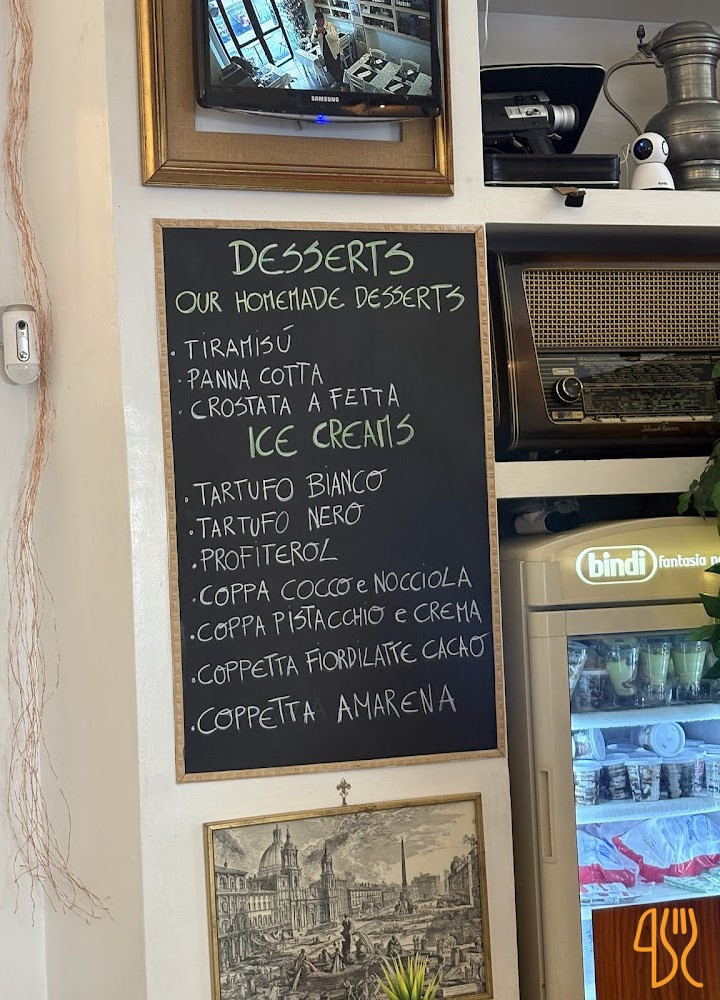 SAMSUNG
DESSERTS
OUR HOMEMADE DESSERTS
. TIRAMISÚ
. PANNA COTTA
. CROSTATA A FETTA
ICE CREAMS
. TARTUFO BIANCO
. TARTUFO NERO
. PROFITEROL
. COPPA COCCO e NOCCIOLA
. COPPA PISTACCHIO e CREMA
. COPPETTA FIORDILATTE CACAO
. COPPETTA AMARENA
bindi fantasia